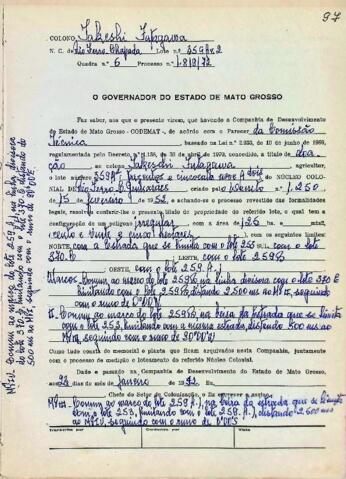 97
COLONO Takeshi Futagawa
N. C. de Rio Ferro - Chapada Lote n.º 359A.2
Quadra n.º 6 Processo n.º 1.818/72
O GOVERNADOR DO ESTADO DE MATO GROSSO
Faz saber, aos que o presente virem, que havendo a Companhia de Desenvolvimento
do Estado de Mato Grosso - CODEMAT, de acordo com o Parecer da Comissão
Técnica, baseado na Lei n.º 2.933, de 10 de junho de 1969,
regulamentada pelo Decreto n.º de 30 de abril de 1970, concedido, a título, doa
ção ao Takeshi Futagawa, agricultor,
o lote número 359A² trezentos e cincoenta nove A dois do NÚCLEO COLO-
NIAL DE Rio Ferro - Guimarães criado pelo Decreto n.º 1.250
de 15 de fevereiro de 1952, e achando-se o processo revestido das formalidades
legais, resolvi, conferir-lhe o presente título de propriedade do referido lote, o qual tem a
configuração de um polígono irregular com a área de 125 hs.
cento e vinte e cinco hectares, com os seguintes limites:
NORTE, com a Estrada que se limita com o lote 255 SUL, com o lote
370.B LESTE, com o lote 259B
OESTE, com o lote 259A.1
Marcos: Comum ao marco do lote 259B na linha divisora com o lote 370 B
limitando com o lote 259B, distando 2.500 ms ao MII, seguindo
com o rumo de 0º00'N
II. Comum ao marco do lote 259B, na beira da estrada que se limita
com o lote 253, limitando com a mesma estrada, distando 500 ms ao
MIII, seguindo com o rumo de 90º00'E
Como tudo consta do memorial e planta que ficam arquivados nesta Companhia, juntamente
com o processo de medição e loteamento do referido Núcleo Colonial.
Dado e passado na Companhia de Desenvolvimento do Estado de Mato Grosso,
aos 24 do mês de Janeiro de 1972. Eu
Chefe do Setor de Colonização, o fiz escrever e assino.
MIII. Comum ao marco do lote 259A.1, na beira da estrada que se limita
com o lote 253, limitando com o lote 259A.1, distando 2.500 ms
ao MIV, seguindo com o rumo de 0º00'S
Transcrito por
Conferido por
Visto
MIV. Comum ao marco do lote 259A.1 na linha divisora
do lote 370B, limitando com o lote 370B, distando de
500 ms ao MI, seguindo com o rumo de 90º00'E